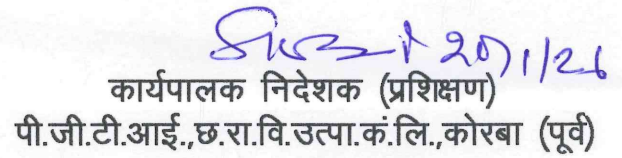 20/1/26
कार्यपालक निदेशक (प्रशिक्षण)
पी.जी.टी.आई.,छ.रा.वि.उत्पा.कं.लि.,कोरबा (पूर्व)